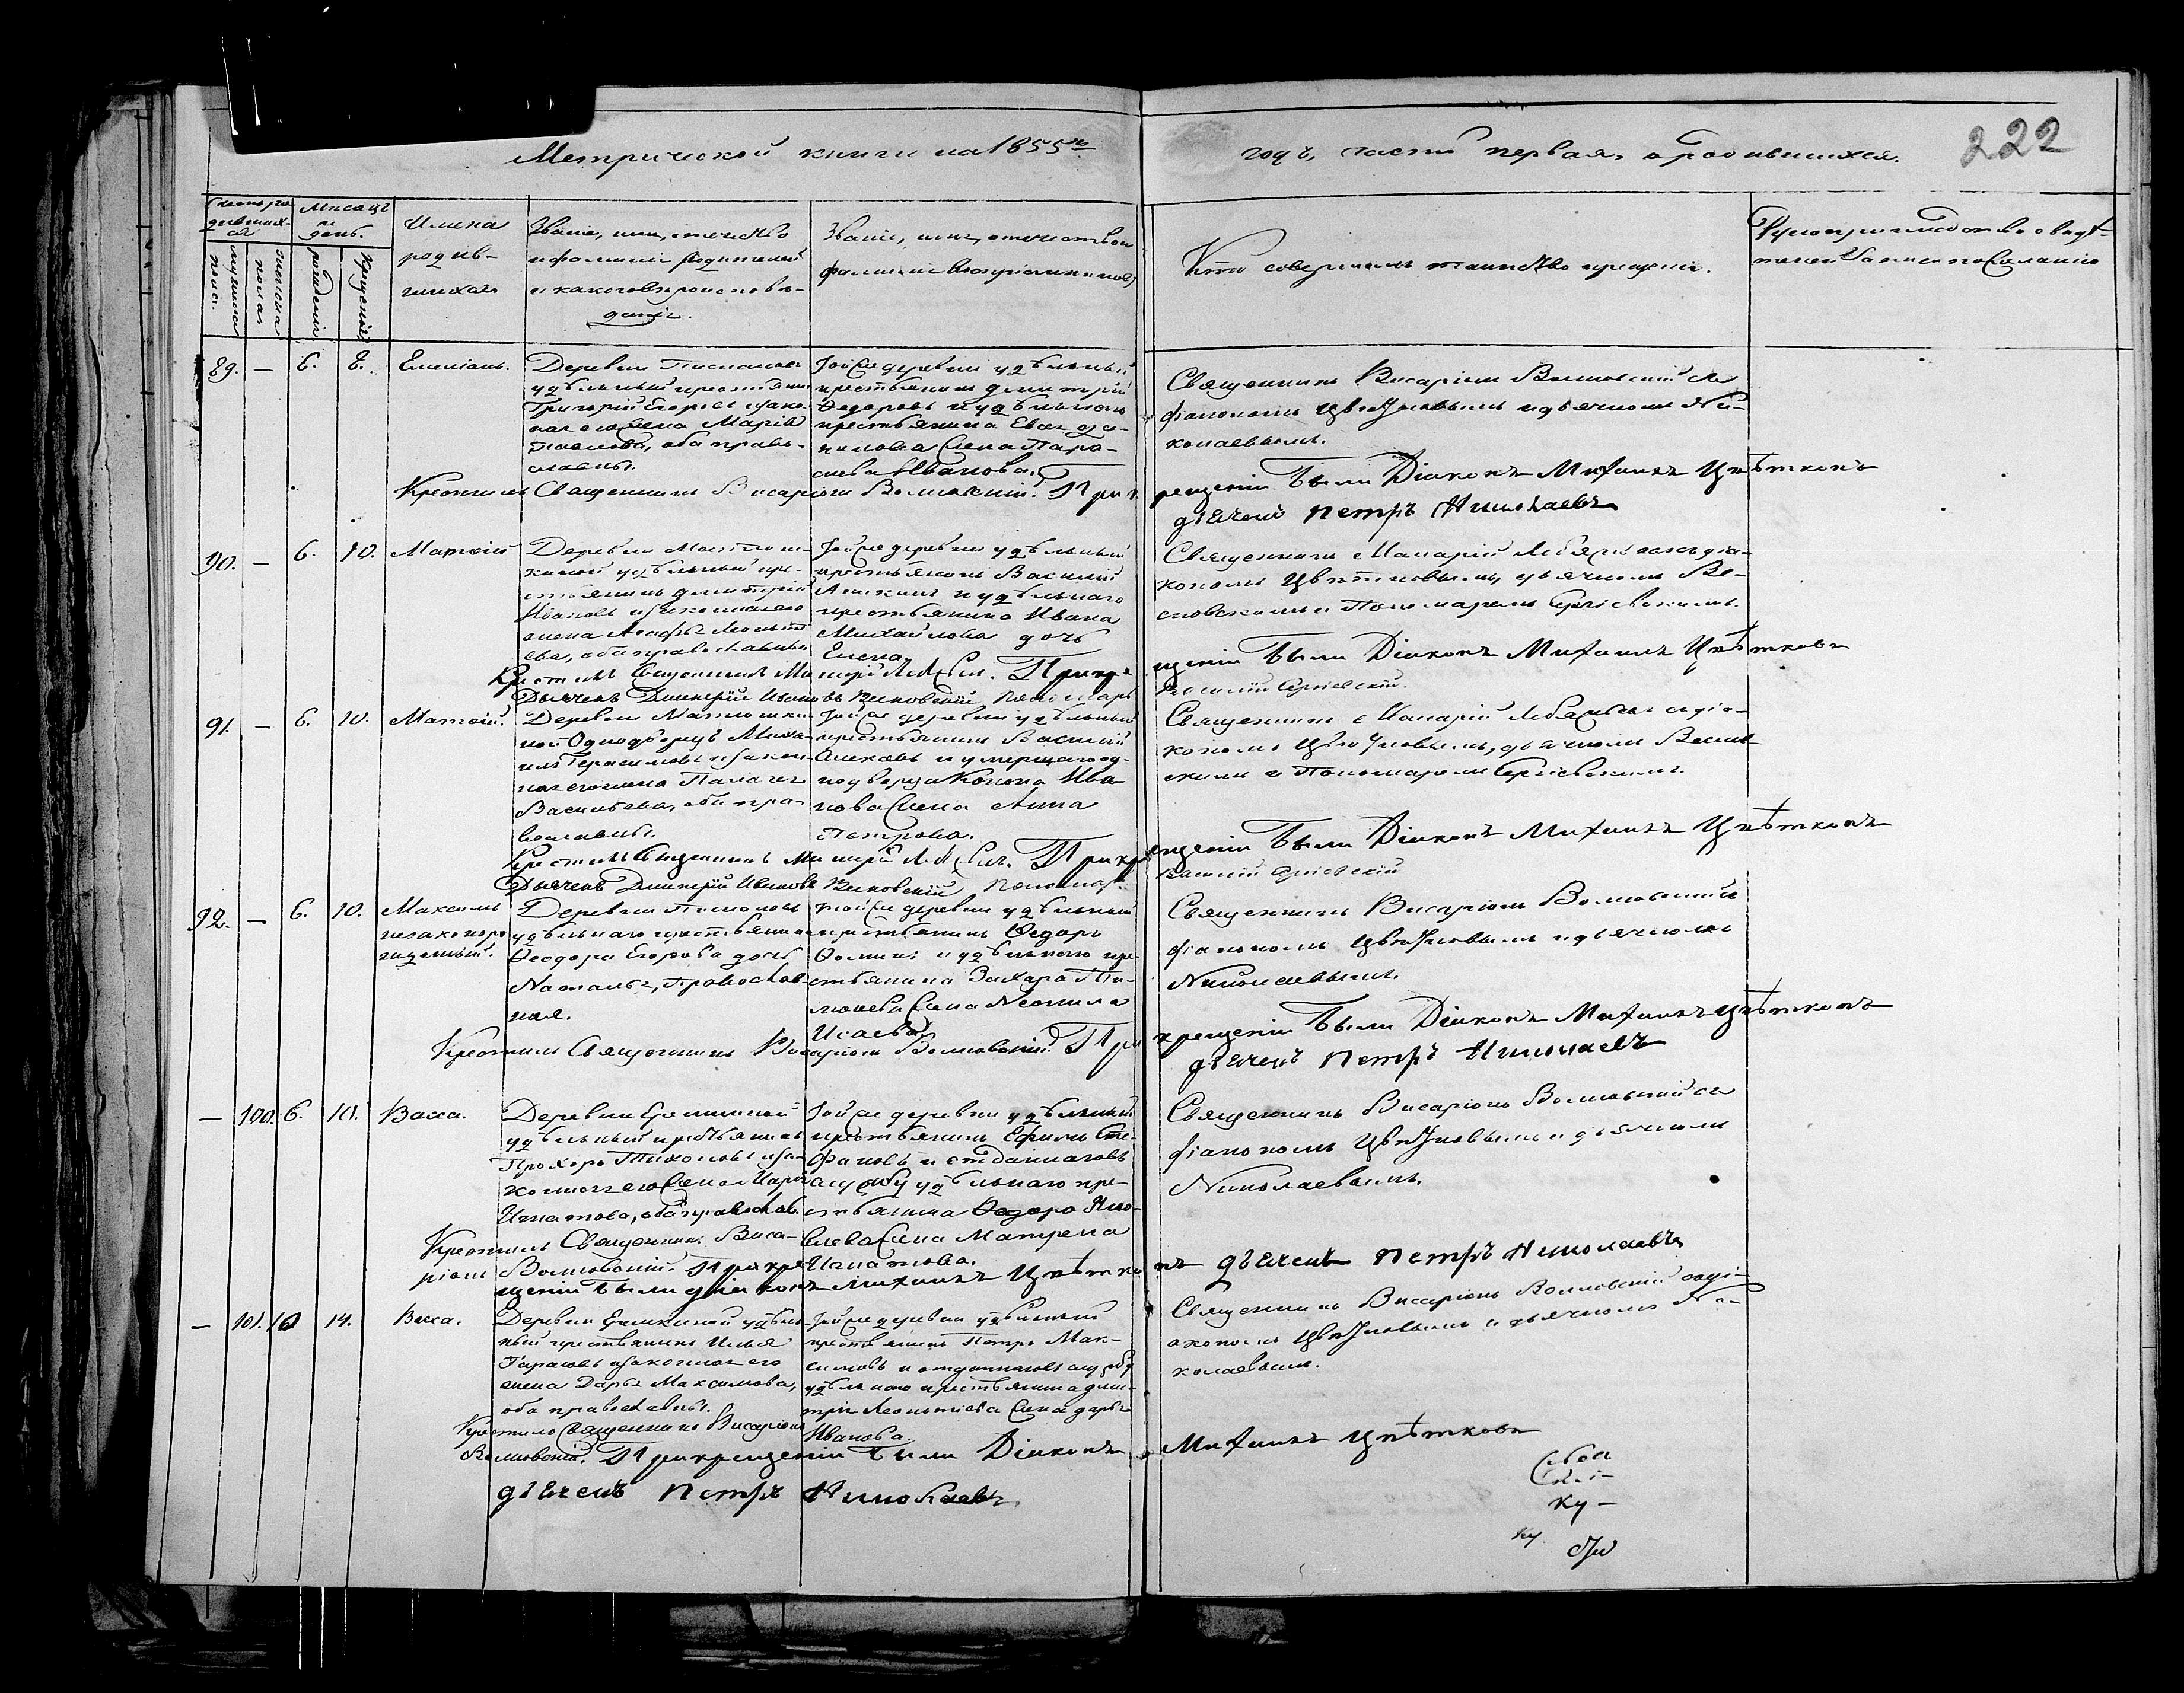 Метрической книги на 1855й
годъ, части первая, о родившихся.
222
Месяцъ и день.
мужеска полъ.
женска пола.
рожденія
крещенія
Имена родив-
шихся
Званіе, имя, отчество
и фамиліи родителей
и какого вероиспове-
данія.
Званіе, имя, отчество и
фамилія воспріемниковъ
Кто совершалъ таинство крещенія.
Рукоприкладство свидѣ-
телей записи по желанію
89. — 6. 8. Емеліанъ.
Деревни
удѣльный крестьянинъ
Григорій Егоровъ и зако-
ная его жена Марія
Павлова, оба право-
славны.
Той же деревни удѣльный
крестьянинъ Димитрій
Ѳедоровъ и удѣльнаго
крестьянина
жена Пара-
скева Иванова.
Священникъ Висаріонъ Волковскій съ
діакономъ Цвѣтковымъ и дьячкомъ Ни-
колаевымъ.
Крестилъ Священникъ Висаріонъ Волковскій. При к
рещеніи были Діаконъ Михаилъ Цвѣтковъ
дьячекъ Петръ Николаевъ
90. — 6. 10. Матвій
Деревни Матюш-
киной удѣльный кре-
стьянинъ Димитрій
Ивановъ и законная его
жена Агафья Леонть-
ева, оба православны
Той же деревни удѣльный
крестьянинъ Василій
и удѣльнаго
крестьянина Ивана
Михайлова дочь
Елена.
Священникъ Макарій съ діа-
кономъ Цвѣтковымъ, дьячкомъ Ве-
и Пономаремъ Сергіевскимъ.
Крестилъ Священникъ Макарій При кре
щеніи были Діаконъ Михаилъ Цвѣтковъ
Дьячекъ Димитрій Ивановъ Пономарь
Василій Сергіевскій.
91. — 6. 10. Матвій.
Деревни Матюшки-
ной Однодворецъ Миха-
илъ Герасимовъ и закон-
ная его жена Палагея
Васильева, оба пра-
вославны.
Той же деревни удѣльный
крестьянинъ Василій
и умершаго од-
нодворца Конона Ива-
нова жена Анна
Петрова.
Священникъ Макарій съ діа-
кономъ Цвѣтковымъ, дьячкомъ
и Пономаремъ Сергіевскимъ.
Крестилъ Священникъ Макарій При кр
ещеніи были Діаконъ Михаилъ Цвѣтковъ
Дьячекъ Димитрій Ивановъ Пономарь
Василій Сергіевскій
92. — 6. 10. Максимъ
незаконоро-
жденный.
Деревни
удѣльнаго крестьянина
Ѳеодора Егорова дочь
Наталья, Православ-
ная.
Той же деревни удѣльный
крестьянинъ Ѳедоръ
Ѳоминъ и удѣльнаго кре-
стьянина Захара Ти-
моѳева жена Неонила
Исаева.
Священникъ Висаріонъ Волковскій съ
діакономъ Цвѣтковымъ и дьячкомъ
Николаевымъ.
Крестилъ Священникъ Висаріонъ Волковскій. При
крещеніи были Діаконъ Михаилъ Цвѣтковъ
дьячекъ Петръ Николаевъ
— 100. 6. 10. Васса.
Деревни Еремкиной
удѣльный крестьянинъ
Прохоръ Тихоновъ и за-
конная его жена Марія
Игнатова, оба православ.
Той же деревни удѣльный
крестьянинъ Ефимъ Сте-
фановъ и отданнаго въ
службу удѣльнаго кре-
стьянина Ѳедора
жена Матрена
Игнатова.
Священникъ Висаріонъ Волковскій съ
діакономъ Цвѣтковымъ и дьячкомъ
Николаевымъ.
Крестилъ Священникъ Виса-
ріонъ Волковскій. При кре
щеніи были діаконъ Михаилъ Цвѣтковъ дьячекъ Петръ Николаевъ
— 101. 10 14. Васса.
Деревни Еремкиной удѣль-
ный крестьянинъ Илья
Тарасовъ и законная его
жена Дарья Максимова,
оба православны.
Той же деревни удѣльный
крестьянинъ Петръ Мак-
симовъ и отданнаго въ службу
удѣльнаго крестьянина Дми-
трія Леонтіева жена Дарья
Иванова.
Священникъ Висаріонъ Волковскій съ ді-
акономъ Цвѣтковымъ и дьячкомъ Ни-
колаевымъ.
Крестилъ Священникъ Висаріонъ
Волковскій. При крещеніи были Діаконъ Михаилъ Цвѣтковъ
дьячекъ Петръ Николаевъ.
ку —
ку